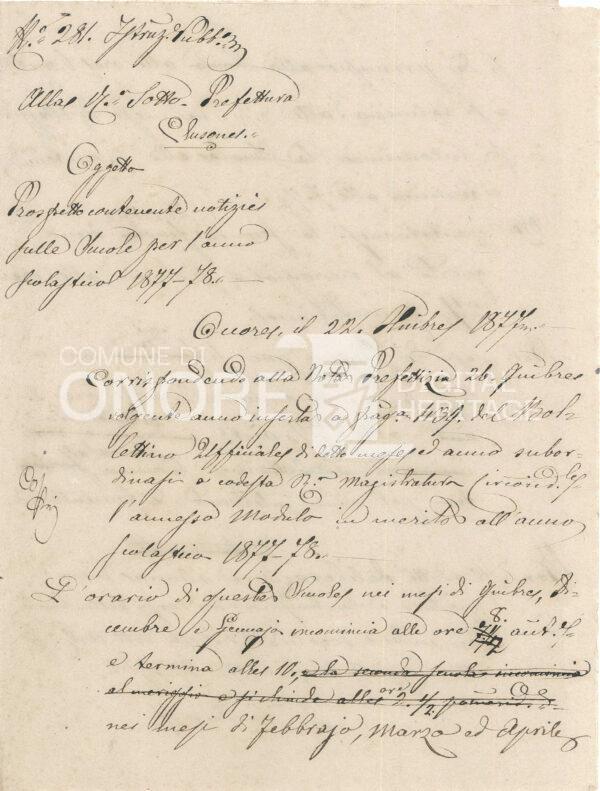 N.° 281. Istruz. Pubb.
Alla R.ª Sotto-Prefettura
Clusone
Oggetto
Prospetto contenente notizie
sulle Scuole per l'anno
scolastico 1877-78.
Onore, il 22. 9mbre 1877.
COMUNE DI
ONORE
DIGITAL
HERITAGE
Corrispondendo alla Nota Prefettizia 26. 9mbre
volgente anno inserta a pag.ª 434. del Bol-
lettino Ufficiale di detto mese ed anno subor-
dinasi a codesta R.ª Magistratura Circond.le
l'annesso Modulo in merito all'anno
scolastico 1877-78.
L'orario di queste Scuole nei mesi di 9mbre, Di-
cembre e Gennajo incomincia alle ore 8. ant.
e termina alle 10, e la seconda scuola incomincia
al meriggio e si chiude alle ore 2. 1/2 pomerid.e
nei mesi di Febbrajo, Marzo ed Aprile